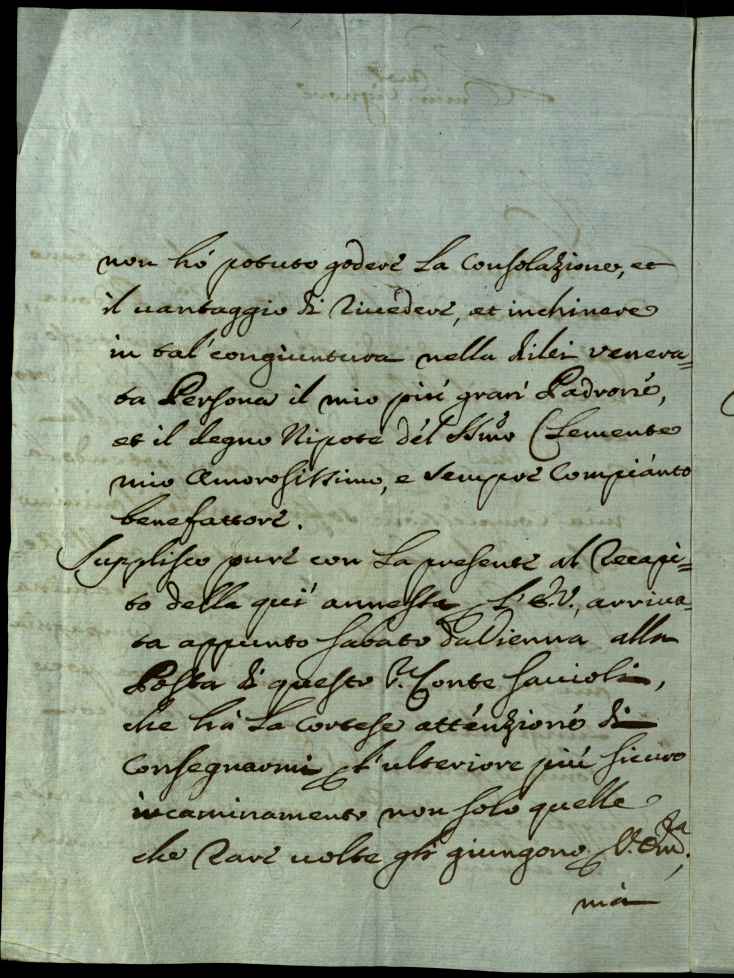 non hó potuto godere la Consolazione, et
il vantaggio di rivedere, et inchinare
in tal' congiuntura nella di lei venera=
ta Persona il mio più gran' Padrone,
et il degno Nipote del Ssmo Clemente
mio Amorosissimo, e sempre Compianto
benefattore.
Supplisco pure con la presente al recapi=
to della qui annessa E.V., arriva=
ta appunto Sabato da Vienna alla
Posta di questo S. Conte
che hà la Cortese attenzione di
Consegnarmi l'ulteriore più sicuro
incaminamento non solo quelle
che rare volte gli giungono V. Em.za,
mà